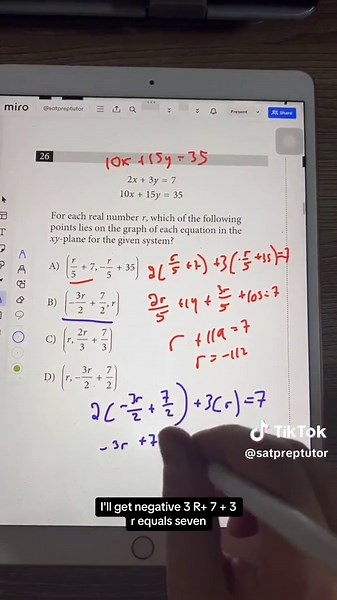 miro @satpreptutor Present Share
26
10x + 15y = 35
2x + 3y = 7
10x + 15y = 35
For each real number r, which of the following
points lies on the graph of each equation in the
xy-plane for the given system?
A) (r/5 + 7, -r/5 + 35) 2(r/5 + 7) + 3(-r/5 + 35) = 7
B) (-3r/2 + 7/2, r) 2r/5 + 14 + 3r/5 + 105 = 7
C) (r, 2r/3 + 7/3) r + 119 = 7
r = -112
D) (r, -3r/2 + 7/2)
2(-3r/2 + 7/2) + 3(r) = 7
-3r + 7
TikTok
@satpreptutor
I'll get negative 3 R+ 7 + 3
r equals seven